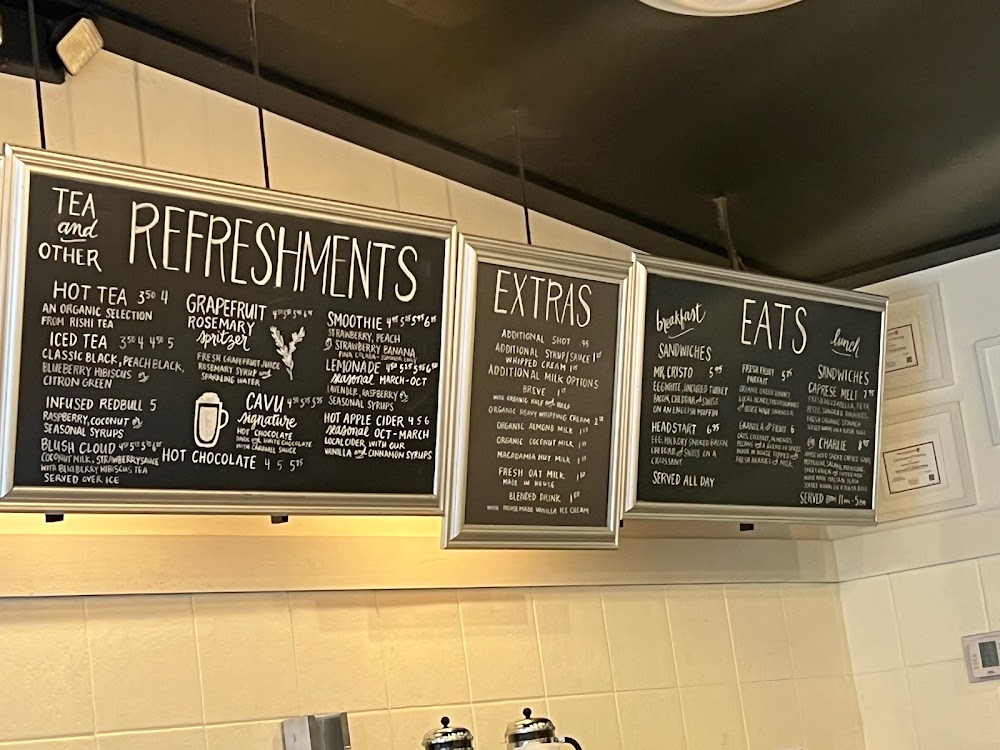 TEA
and
OTHER
REFRESHMENTS
HOT TEA 3⁵⁰ 4
AN ORGANIC SELECTION
FROM RISHI TEA
ICED TEA 3⁵⁰ 4 4⁵⁰ 5
CLASSIC BLACK, PEACH BLACK,
BLUEBERRY HIBISCUS or
CITRON GREEN
INFUSED REDBULL 5
RASPBERRY, COCONUT or
SEASONAL SYRUPS
BLUSH CLOUD
COCONUT MILK, STRAWBERRY SAUCE
WITH BLUEBERRY HIBISCUS TEA
SERVED OVER ICE
GRAPEFRUIT
ROSEMARY
spritzer
FRESH GRAPEFRUIT JUICE
ROSEMARY SYRUP and
SPARKLING WATER
CAVU
signature
HOT CHOCOLATE
DARK and WHITE CHOCOLATE
WITH CARAMEL SAUCE
HOT CHOCOLATE 4 5 5⁷⁵
SMOOTHIE
STRAWBERRY, PEACH
or STRAWBERRY BANANA
LEMONADE
seasonal MARCH-OCT
LAVENDER, RASPBERRY or
SEASONAL SYRUPS
HOT APPLE CIDER 4 5 6
seasonal OCT - MARCH
LOCAL CIDER, WITH OUR
VANILLA and CINNAMON SYRUPS
EXTRAS
ADDITIONAL SHOT .95
ADDITIONAL SYRUP/SAUCE
WHIPPED CREAM
ADDITIONAL MILK OPTIONS
BREVE
WITH ORGANIC HALF and HALF
ORGANIC HEAVY WHIPPING CREAM
ORGANIC ALMOND MILK
ORGANIC COCONUT MILK
MACADAMIA NUT MILK
FRESH OAT MILK
MADE IN HOUSE
BLENDED DRINK
WITH HOMEMADE VANILLA ICE CREAM
EATS
breakfast
SANDWICHES
MR. CRISTO 5⁹⁵
EGG WHITE, UNCURED TURKEY
BACON, CHEDDAR and SWISS
ON AN ENGLISH MUFFIN
HEADSTART 6⁹⁵
EGG, HICKORY SMOKED BACON,
CHEDDAR and SWISS ON A
CROISSANT
SERVED ALL DAY
FRESH FRUIT
PARFAIT
ORGANIC GREEK YOGURT
GRANOLA and FRUIT 6
FRESH BERRIES and MILK
lunch
SANDWICHES
CAPRESE MELT 7⁹⁵
FRESH MOZZARELLA, FETA
PESTO, SUNDRIED TOMATOES,
FRESH ORGANIC SPINACH
CHARLIE 8⁹⁵
SERVED 11AM - 5PM